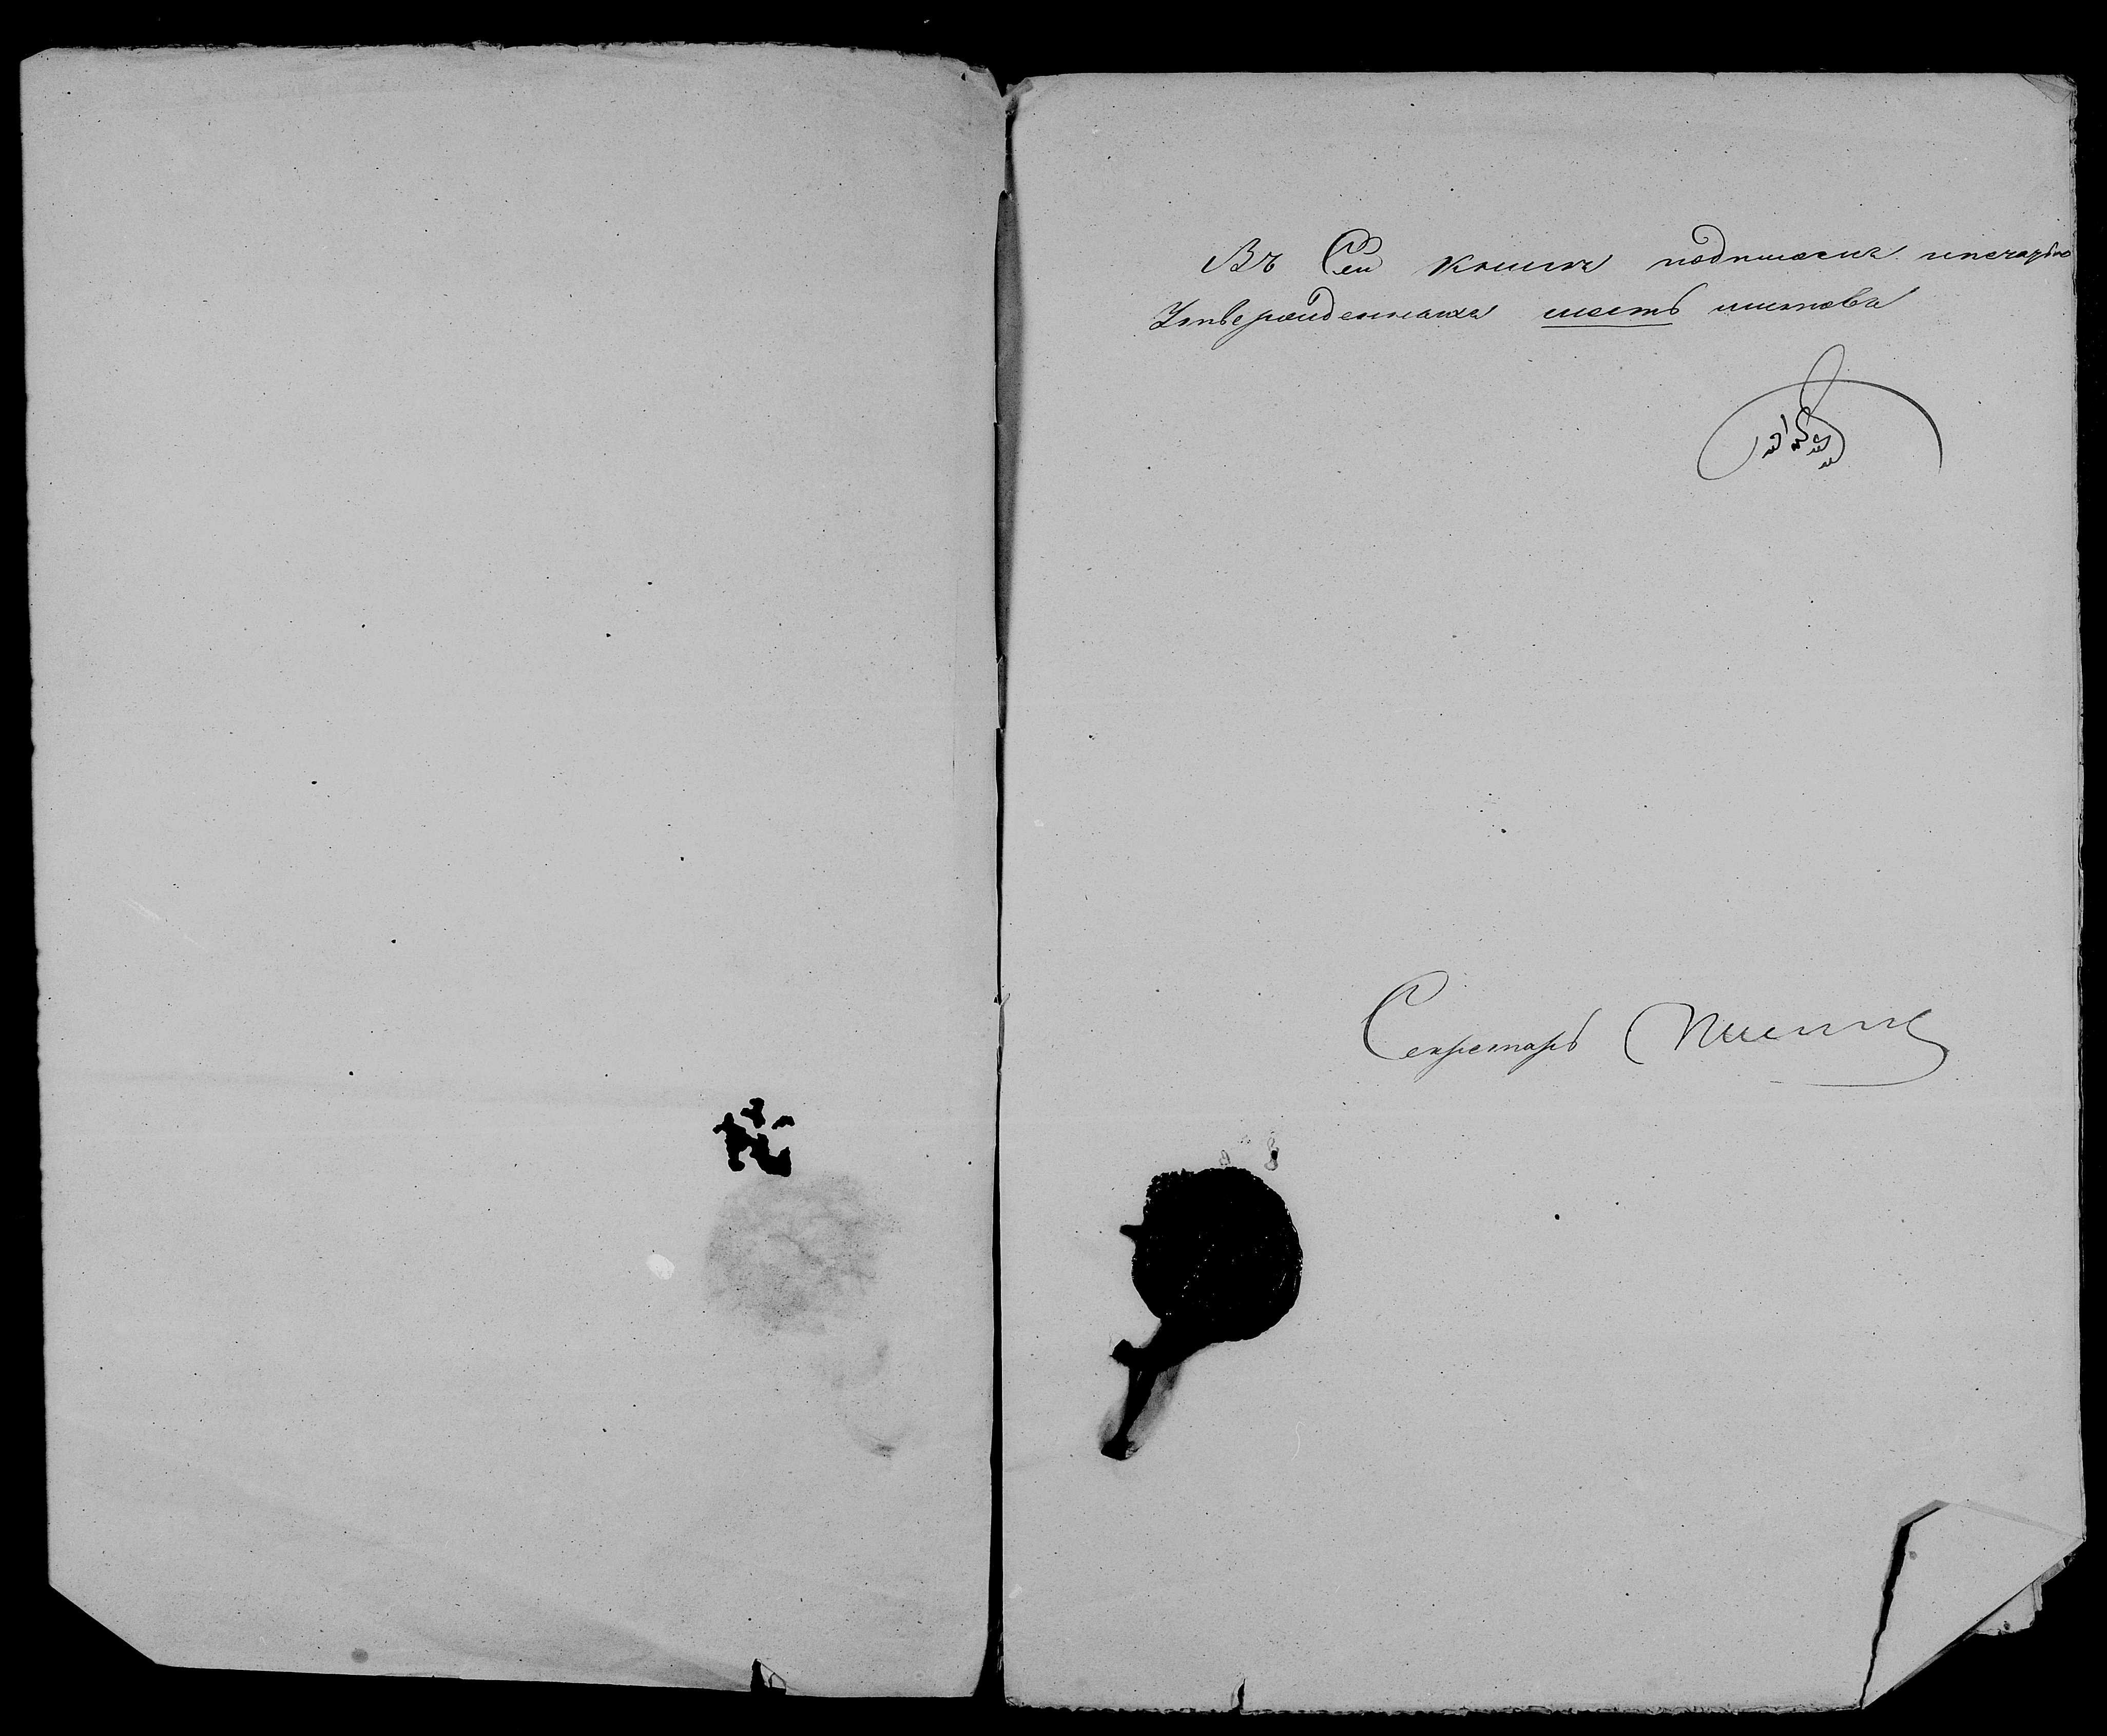 Въ Сей книгѣ подписана и печатью
Утвержденныхъ шесть листовъ
Секретарь